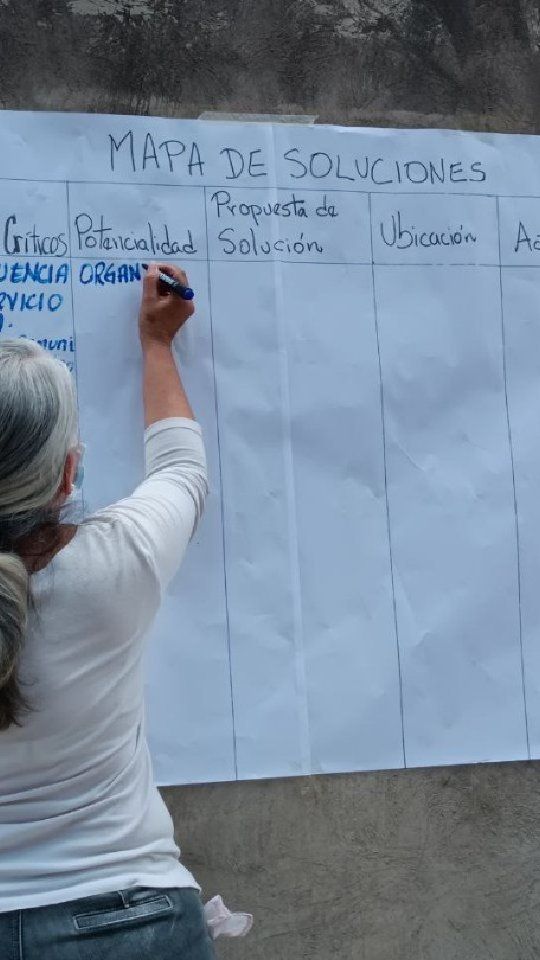 MAPA DE SOLUCIONES
Criticos Potencialidad Propuesta de
Solución Ubicación
UENCIA ORGAN
RVICIO
muni